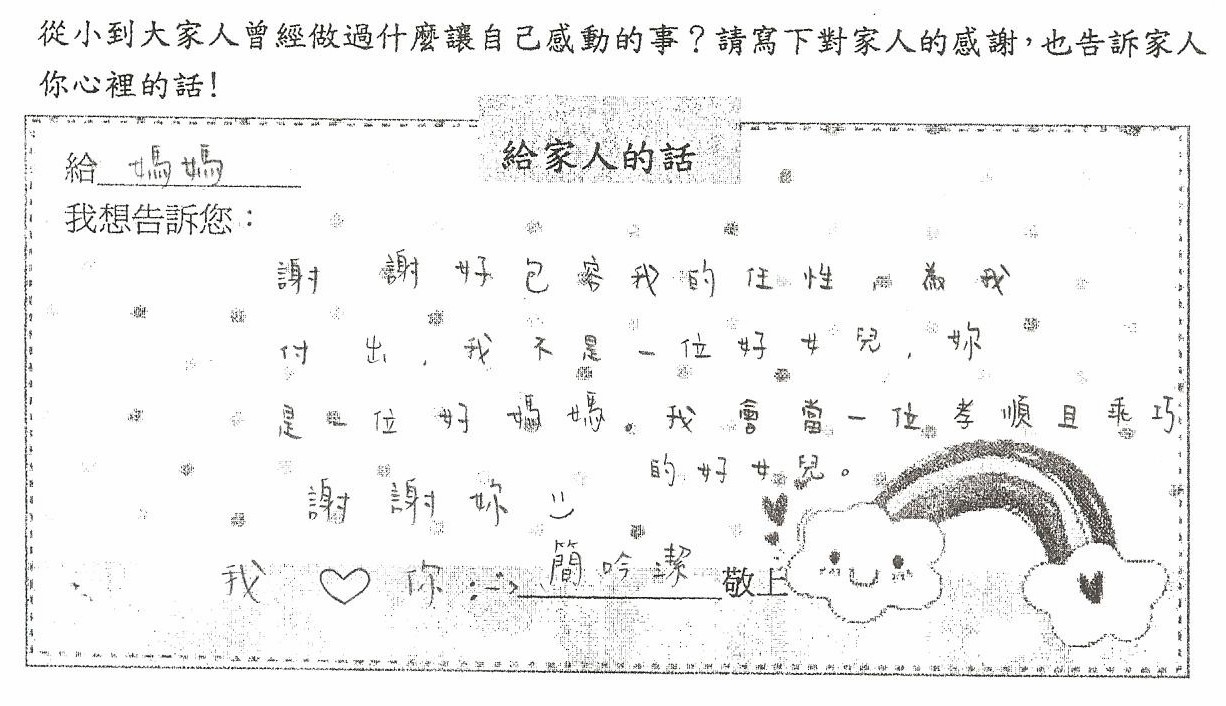 從小到大家人曾經做過什麼讓自己感動的事？請寫下對家人的感謝，也告訴家人
你心裡的話！
給家人的話
給 媽媽
我想告訴您：
謝謝好包容我的任性，為我
付出，我不是一位好女兒，妳
是一位好媽媽。我會當一位孝順且乖巧
的好女兒。
謝謝妳 :)
我 ♡ 你 :-> 簡吟潔 敬上